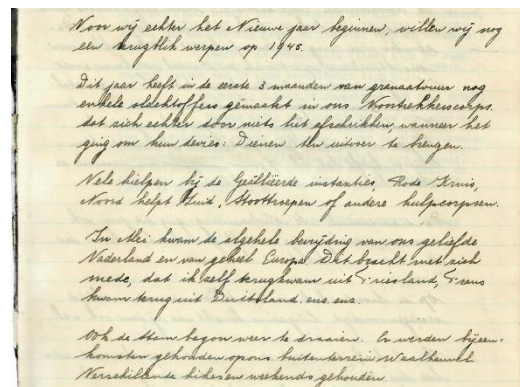 Voor wij echter het Nieuwe jaar beginnen, willen wij nog
een terugblik werpen op 1945.
Dit jaar heeft in de eerste 3 maanden van granaatvuur nog
enkele slachtoffers gemaakt in ons Voortrekkerscorps,
dat zich echter door niets liet afschrikken, wanneer het
ging om hun devies: Dienen ten uitvoer te brengen.
Vele hielpen bij de Geälliëerde instanties, Rode Kruis,
Noord helpt Zuid, Stoottroepen of andere hulpcorpsen.
In Mei kwam de algehele bevrijding van ons geliefde
Vaderland en van geheel Europa. Dit bracht met zich
mede, dat ik zelf terugkwam uit Friesland, Frans
kwam terug uit Duitsland. enz. enz.
Ook de Stam begon weer te draaien. Er werden bijeen-
komsten gehouden op ons buitenterrein
Verschillende hikes en weekends gehouden.